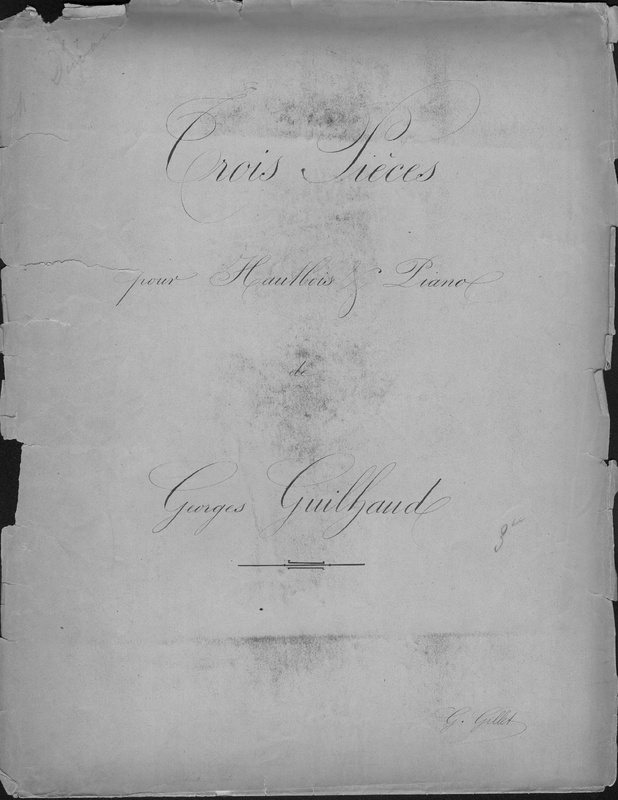 Trois Pièces
pour Hautbois & Piano
de
Georges Guilhaud
G. Gillet